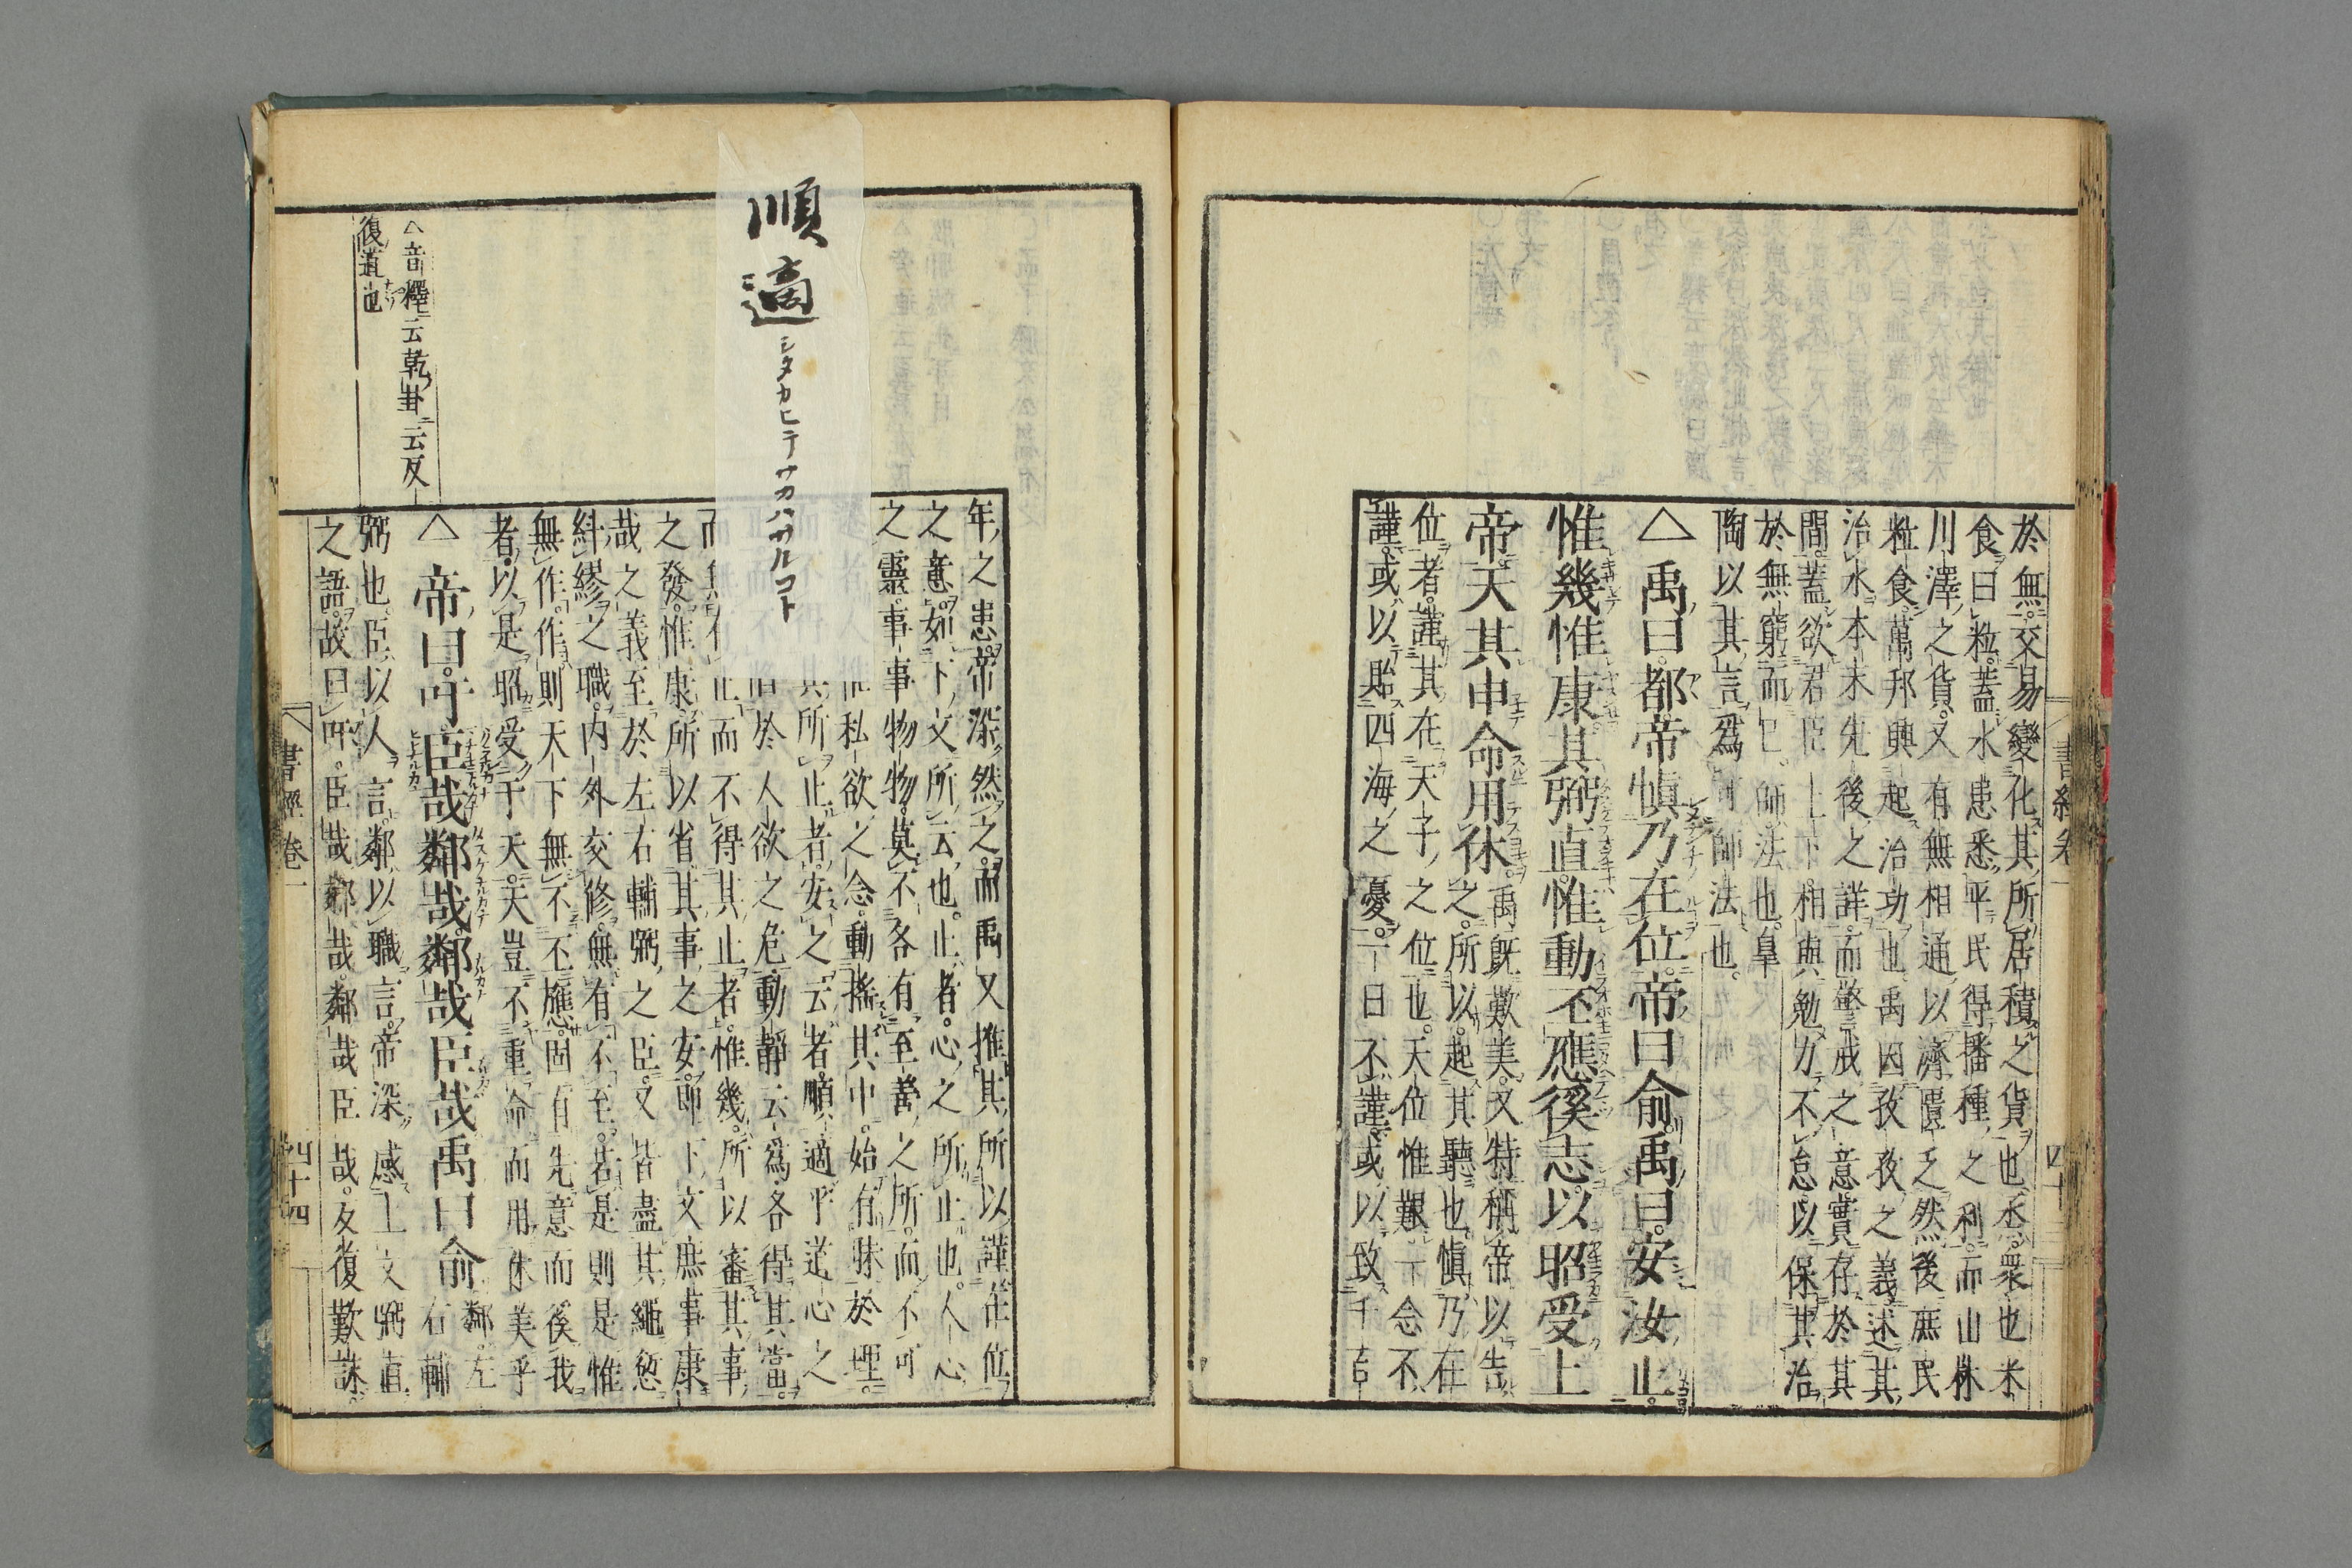 書經卷一 四十三
於無。交易變化其所居積之貨也。烝。衆也米
食曰粒。蓋水患悉平民得播種之利。而山林
川澤之貨。又有無相通以濟匱乏然後庶民
粒食。萬邦興起治功也。禹因孜孜之義述其
治水本末先後之詳。而警戒之意實存於其
間。蓋欲君臣上下。相與勉力不怠。以保其治
於無窮而已。師法也。皐
陶以其言爲可師法也。
△禹曰。都帝愼乃在位。帝曰俞。禹曰。安汝止。
惟幾惟康。其弼直。惟動丕應徯志。以昭受上
帝。天其申命用休。禹既歎美。又特稱帝以告
之。所以起其聽也愼乃在
位者。謹其在天子之位也。天位惟艱一念不
謹。或以貽四海之憂。一日不謹。或以致千百
順適 シタカヒテサカハサルコト
年之患。帝深然之。而禹又推其所以謹在位
之意。如下文所云也。止者。心之所止也。人心
之靈。事事物物。莫不各有至善之所。而不可
惟私欲之念。動搖其中。始有昧於理。
其所止者。安之云者。順適乎道心之
陷於人欲之危動靜云爲各得其當。
而無 止而不得其止者。惟幾。所以審其事
之發。惟康。所以省其事之安。即下文庶事康
哉之義至於左右輔弼之臣。又皆盡其繩愆
糾繆之職。内外交修。無有不至。若是則是惟
無作。作則天下無不丕應。固有先意而徯我
者。以是昭受于天。天豈不重命而用休美乎
△音釋云乾卦云反
復道也
△帝曰。吁。臣哉鄰哉。鄰哉臣哉。禹曰俞 鄰。左
右輔
弼也。臣以人言。鄰以職言。帝深感上文弼直
之語。故曰吁。臣哉鄰哉。鄰哉臣哉。反復歎詠。
書經 卷一 四十四